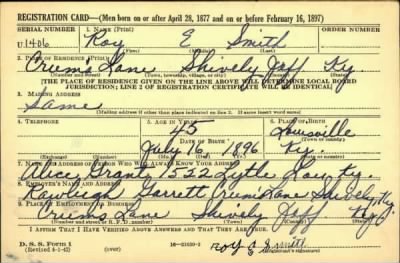 REGISTRATION CARD—(Men born on or after April 28, 1877 and on or before February 16, 1897)
SERIAL NUMBER 1. NAME (Print) ORDER NUMBER
U 1406 Roy E. Smith
(First) (Middle) (Last)
2. PLACE OF RESIDENCE (Print)
Crums Lane Shively Jeff Ky
(Number and street) (Town, township, village, or city) (County) (State)
[THE PLACE OF RESIDENCE GIVEN ON THE LINE ABOVE WILL DETERMINE LOCAL BOARD
JURISDICTION; LINE 2 OF REGISTRATION CERTIFICATE WILL BE IDENTICAL]
3. MAILING ADDRESS
Same
[Mailing address if other than place indicated on line 2. If same insert word same]
4. TELEPHONE 5. AGE IN YEARS 6. PLACE OF BIRTH
45 Louisville
DATE OF BIRTH (Town or county)
July 16, 1896 Ky.
(Exchange) (Number) (Mo.) (Day) (Yr.) (State or country)
7. NAME AND ADDRESS OF PERSON WHO WILL ALWAYS KNOW YOUR ADDRESS
Alice Grant, 1522 Lytle Lou, Ky.
8. EMPLOYER'S NAME AND ADDRESS
Rawleigh Garrett Crums Lane Shively, Ky.
9. PLACE OF EMPLOYMENT OR BUSINESS
Crums Lane Shively Jeff. Ky.
(Number and street or R. F. D. number) (Town) (County) (State)
I AFFIRM THAT I HAVE VERIFIED ABOVE ANSWERS AND THAT THEY ARE TRUE.
D. S. S. Form 1
(Revised 4-1-42) (over) Roy E Smith
(Registrant's signature)